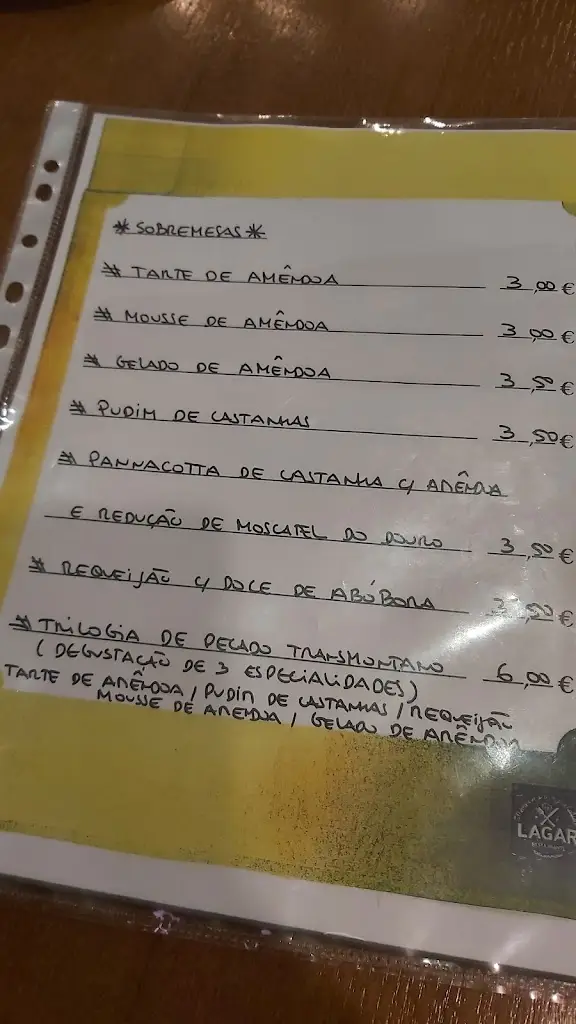 * SOBREMESAS *
* TARTE DE AMÊNDOA 3,00 €
* MOUSSE DE AMÊNDOA 3,00 €
* GELADO DE AMÊNDOA 3,50 €
* PUDIM DE CASTANHAS 3,50 €
* PANNACOTTA DE CASTANHA C/ AMÊNDOA
E REDUÇÃO DE MOSCATEL DO DOURO 3,50 €
* REQUEIJÃO C/ DOCE DE ABÓBORA 3,50 €
* TRILOGIA DE PECADO TRANSMONTANO 6,00 €
( DEGUSTAÇÃO DE 3 ESPECIALIDADES )
TARTE DE AMÊNDOA / PUDIN DE CASTANHAS / REQUEIJÃO
MOUSSE DE AMENDOA / GELADO DE AMÊNDOA
LAGAR